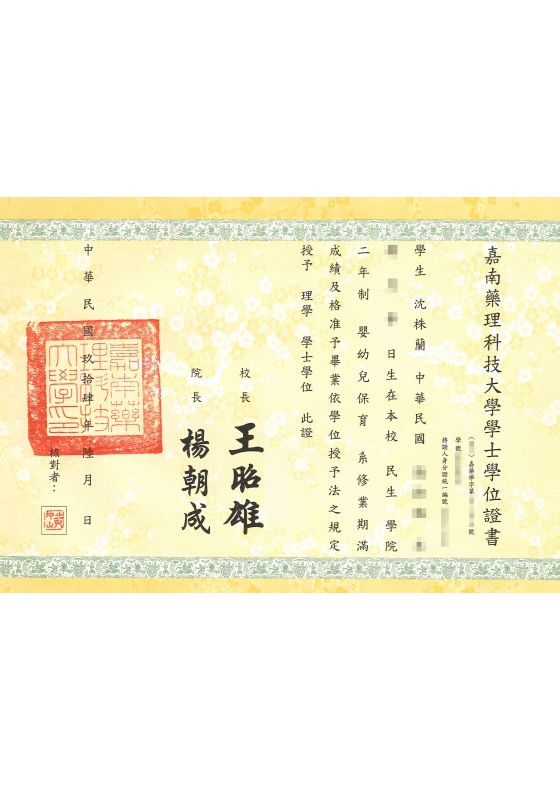 嘉南藥理科技大學學士學位證書
嘉藥學字第 號
學號
持證人身分證統一編號
學生 沈株蘭 中華民國
日生在本校 民生 學院
二年制 嬰幼兒保育 系修業期滿
成績及格准予畢業依學位授予法之規定
授予 理學 學士學位 此證
校長 王昭雄
院長 楊朝成
中華民國玖拾肆年陸月 日
嘉南藥理科技大學印
核對者：